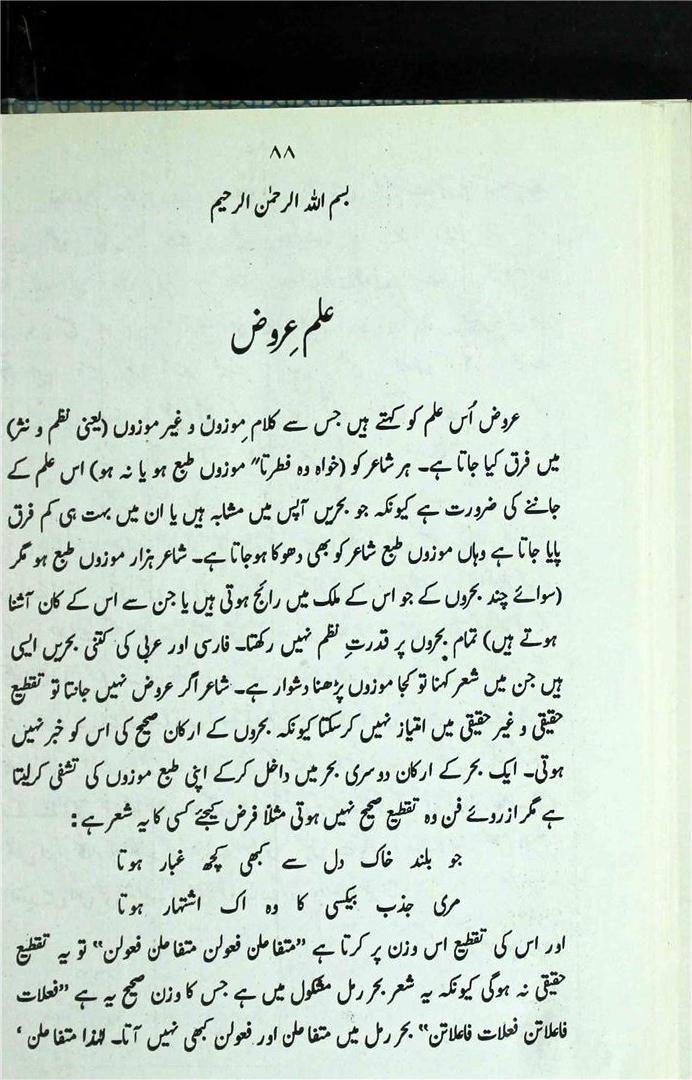 ۸۸
بسم اللہ الرحمٰن الرحیم
علم عِروض
عروض اُس علم کو کہتے ہیں جس سے کلام ِموزون و غیر موزوں (یعنی نظم و نثر)
میں فرق کیا جاتا ہے۔ ہر شاعر کو (خواہ وہ فطرتا" موزوں طبع ہو یا نہ ہو) اس علم کے
جاننے کی ضرورت ہے کیونکہ جو بحریں آپس میں مشابہ ہیں یا ان میں بہت ہی کم فرق
پایا جاتا ہے وہاں موزوں طبع شاعر کو بھی دھوکا ہوجاتا ہے۔ شاعر ہزار موزوں طبع ہو مگر
(سوائے چند بحروں کے جو اس کے ملک میں رائج ہوتی ہیں یا جن سے اس کے کان آشنا
ہوتے ہیں) تمام بحروں پر قدرتِ نظم نہیں رکھتا۔ فارسی اور عربی کی کتنی بحریں ایسی
ہیں جن میں شعر کہنا تو کجا موزوں پڑھنا دشوار ہے۔ شاعر اگر عروض نہیں جانتا تو تقطیع
حقیقی و غیر حقیقی میں امتیاز نہیں کرسکتا کیونکہ بحروں کے ارکان صحیح کی اس کو خبر نہیں
ہوتی۔ ایک بحر کے ارکان دوسری بحر میں داخل کرکے اپنی طبع موزوں کی تشفی کرلیتا
ہے مگر ازروئے فن وہ تقطیع صحیح نہیں ہوتی مثلاً فرض کیجئے کسی کا یہ شعر ہے :
جو بلند خاک دل سے کبھی کچھ غبار ہوتا
مری جذب بیکسی کا وہ اک اشتہار ہوتا
اور اس کی تقطیع اس وزن پر کرتا ہے "متفاعلن فعولن متفاعلن فعولن" تو یہ تقطیع
حقیقی نہ ہوگی کیونکہ یہ شعر بحر رمل مشکول میں ہے جس کا وزن صحیح یہ ہے "فعلات
فاعلاتن فعلات فاعلاتن" بحر رمل میں متفاعلن اور فعولن کبھی نہیں آتا۔ لہٰذا متفاعلن ‘